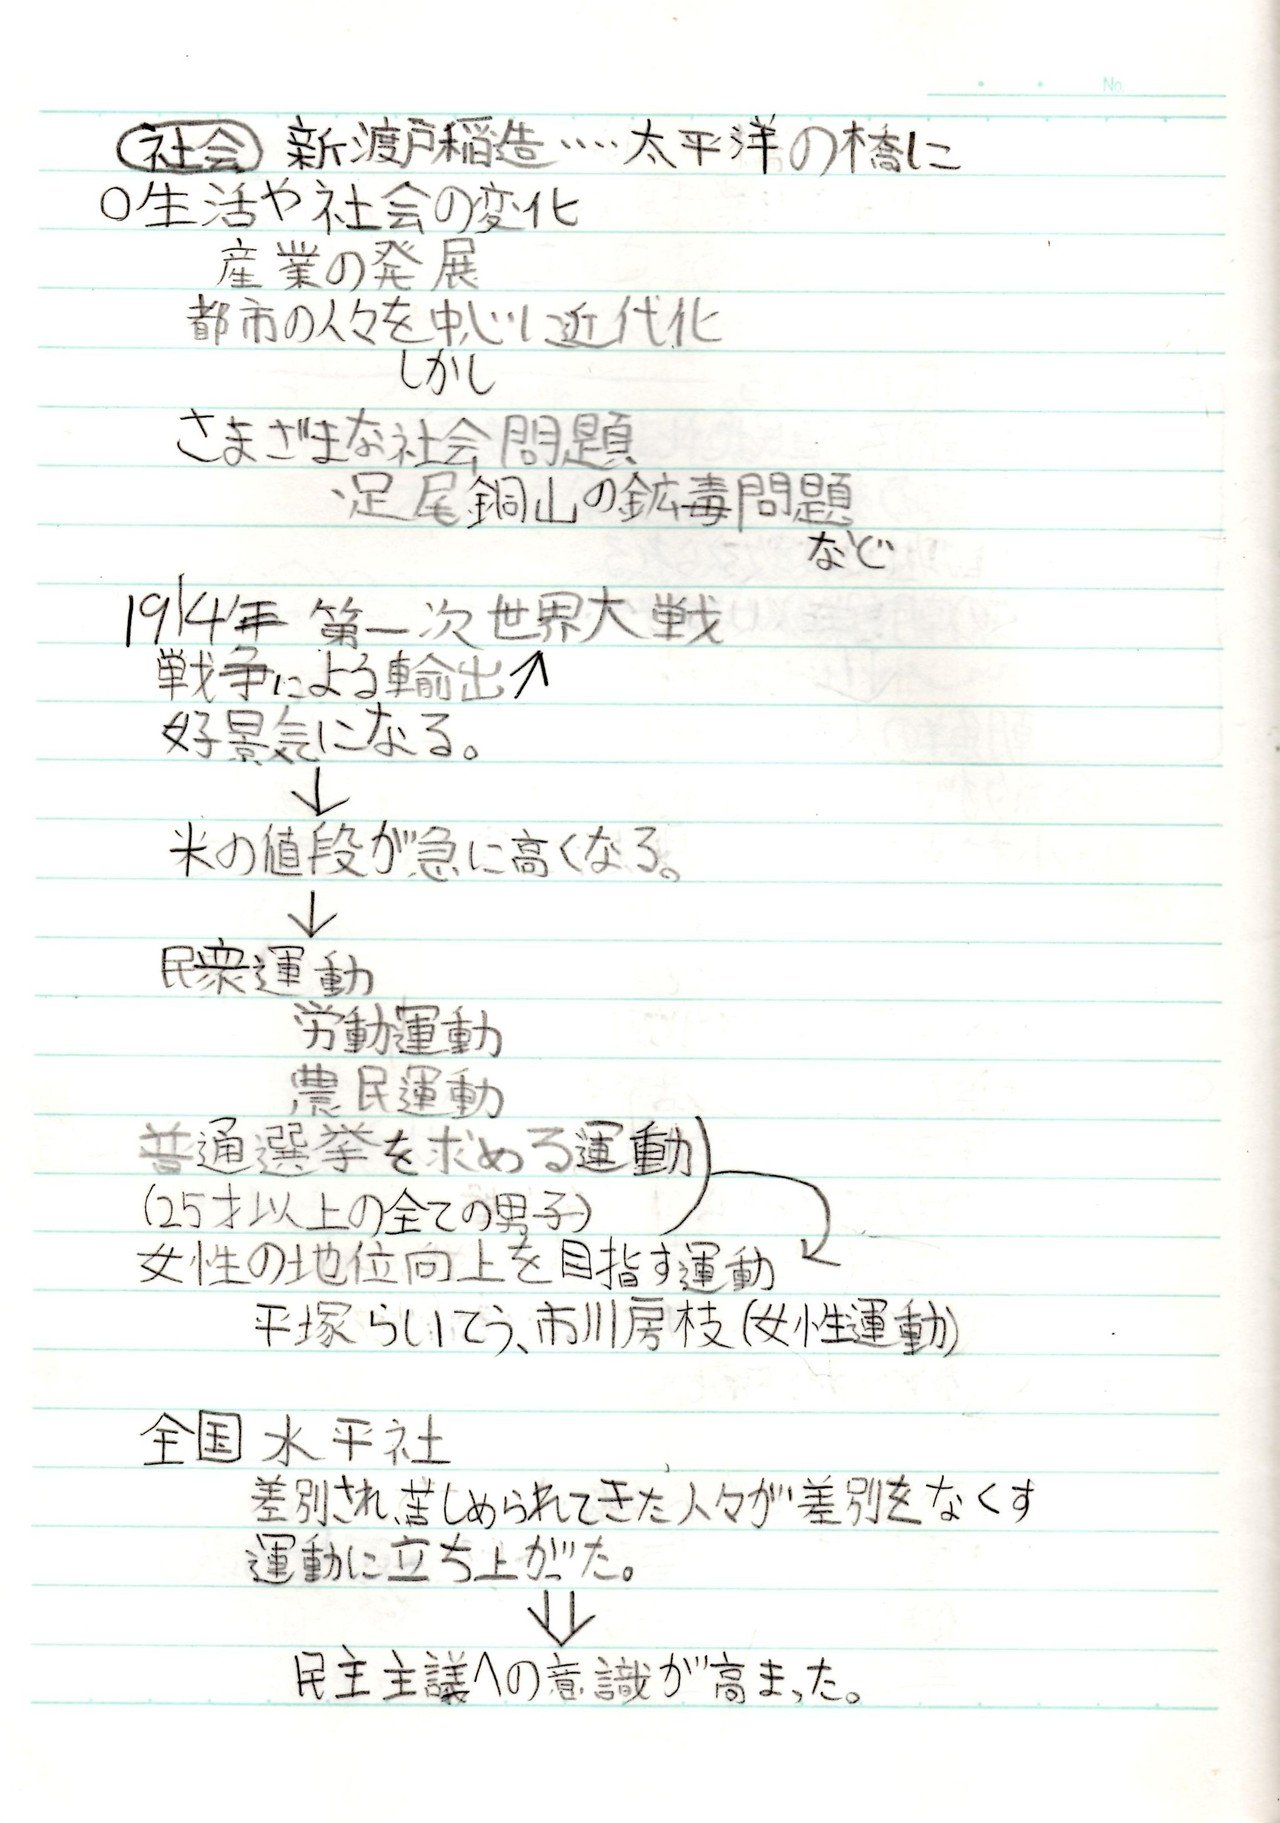 社会 新渡戸稲造‥‥太平洋の橋に
○生活や社会の変化
産業の発展
都市の人々を中心に近代化
しかし
さまざまな社会問題
・足尾銅山の鉱毒問題
など
1914年 第一次世界大戦
戦争による輸出↗
好景気になる。
↓
米の値段が急に高くなる。
↓
民衆運動
労動運動
農民運動
普通選挙を求める運動
(25才以上の全ての男子)
女性の地位向上を目指す運動
平塚らいてう、市川房枝(女性運動)
全国水平社
差別され、苦しめられてきた人々が差別をなくす
運動に立ち上がった。
⇓
民主主議への意識が高まった。
No.